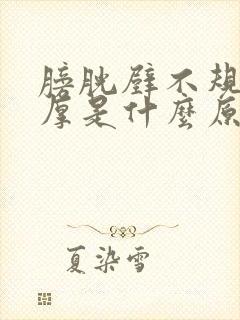 膀胱壁不規
厚是什麼原
夏染雪